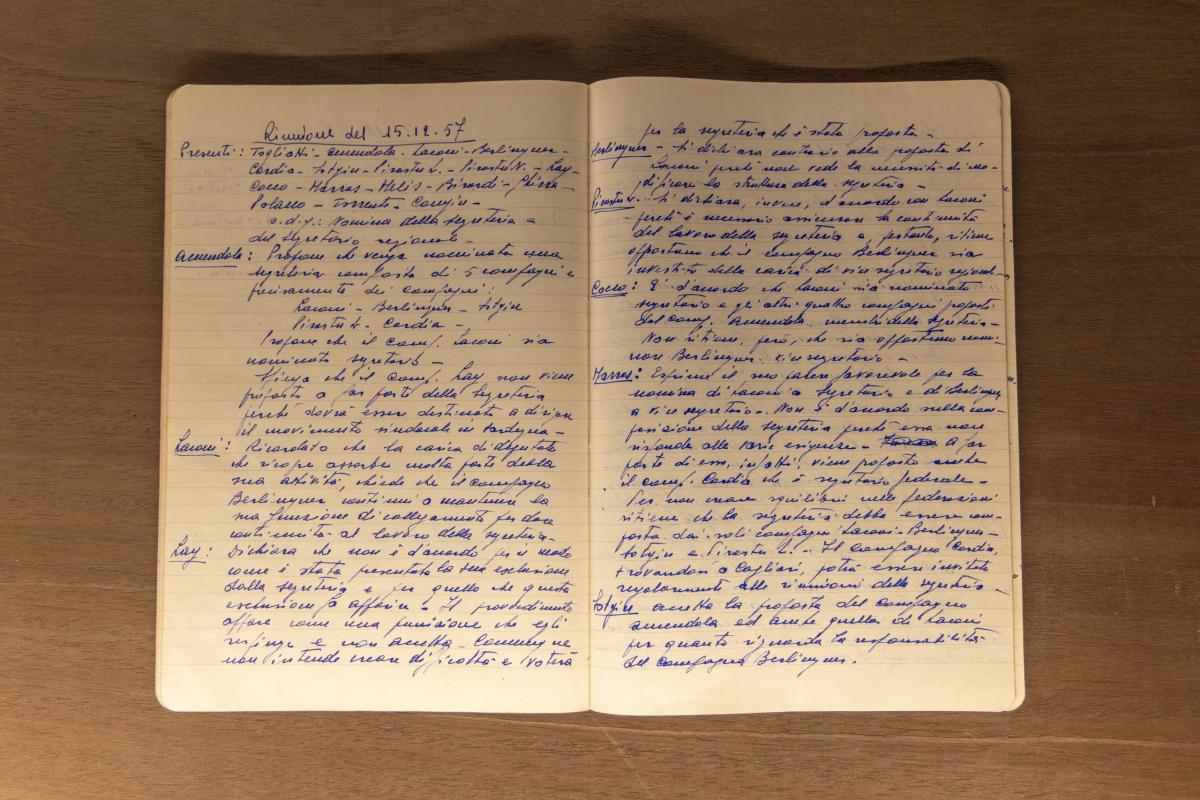 Riunione del 15.12.57
Presenti: Togliatti - Amendola - Laconi - Berlinguer -
Cardia - Sotgiu - Pirastu L. - Pirastu N. - Lay -
Cocco - Marras - Melis - Birardi - Ghirra -
Polano - Torrente -
o.d.g.: Nomina della segreteria e
del segretario regionale -
Amendola: Propone che venga nominata una
segreteria composta di 5 compagni e
precisamente dei compagni:
Laconi - Berlinguer - Sotgiu
Pirastu L. - Cardia -
Propone che il comp. Laconi sia
nominato segretario -
che il comp. Lay non viene
proposto a far parte della segreteria
perché dovrà essere destinato a dirigere
il movimento sindacale in Sardegna -
Laconi: Ricordato che la carica di deputato
che ricopre assorbe molta parte della
sua attività, chiede che il compagno
Berlinguer continui a mantenere la
sua funzione di collegamento per dare
continuità al lavoro della segreteria -
Lay: Dichiara che non è d'accordo per il modo
come è stata presentata la sua esclusione
dalla segreteria e per quello che questa
esclusione fa apparire - Il provvedimento
appare come una punizione che egli
respinge e non accetta - Comunque
non intende creare difficoltà e voterà
per la segreteria che è stata proposta -
Berlinguer - Si dichiara contrario alla proposta di
Laconi perché non vede la necessità di mo-
dificare la struttura della segreteria -
Pirastu L. - Si dichiara, invece, d'accordo con Laconi
perché è necessario assicurare la continuità
del lavoro della segreteria e, pertanto, ritiene
opportuno che il compagno Berlinguer sia
investito della carica di vice segretario regionale -
Cocco: E' d'accordo che Laconi sia nominato
segretario e gli altri quattro compagni proposti
dal comp. Amendola, membri della segreteria -
Non ritiene, però, che sia opportuno nomi-
nare Berlinguer vice segretario -
Marras: Esprime il suo parere favorevole per la
nomina di Laconi a segretario e di Berlinguer
a vice segretario - Non è d'accordo sulla com-
posizione della segreteria perché essa non
risponde alle varie esigenze - A far
parte di essa, infatti, viene proposto anche
il comp. Cardia che è segretario federale -
Per non creare squilibri nelle federazioni
ritiene che la segreteria debba essere com-
posta dai soli compagni Laconi - Berlinguer -
Sotgiu e Pirastu L. - Il compagno Cardia,
trovandosi a Cagliari, potrà essere invitato
regolarmente alle riunioni della segreteria -
Sotgiu accetta la proposta del compagno
Amendola ed anche quella di Laconi
per quanto riguarda la responsabilità
del compagno Berlinguer.